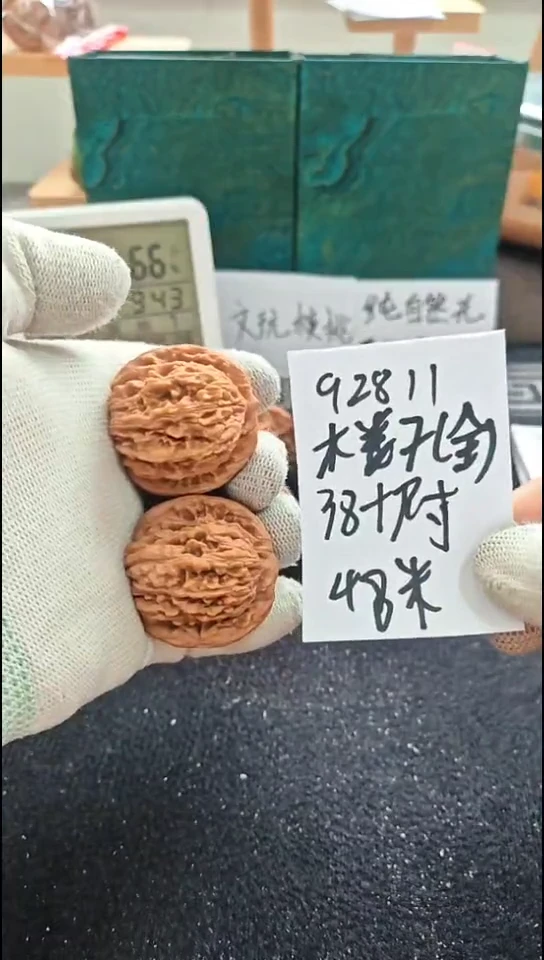 66
943
文玩核桃 纯自然光
92811
木姜子(金)
38+尺寸
48米